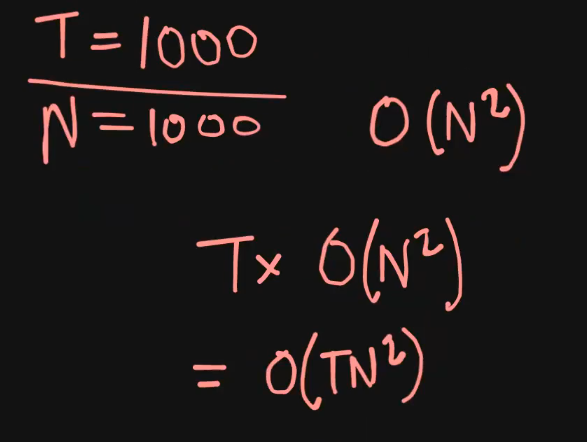 T = 1000
N = 1000
O(N²)
T x O(N²)
= O(TN²)